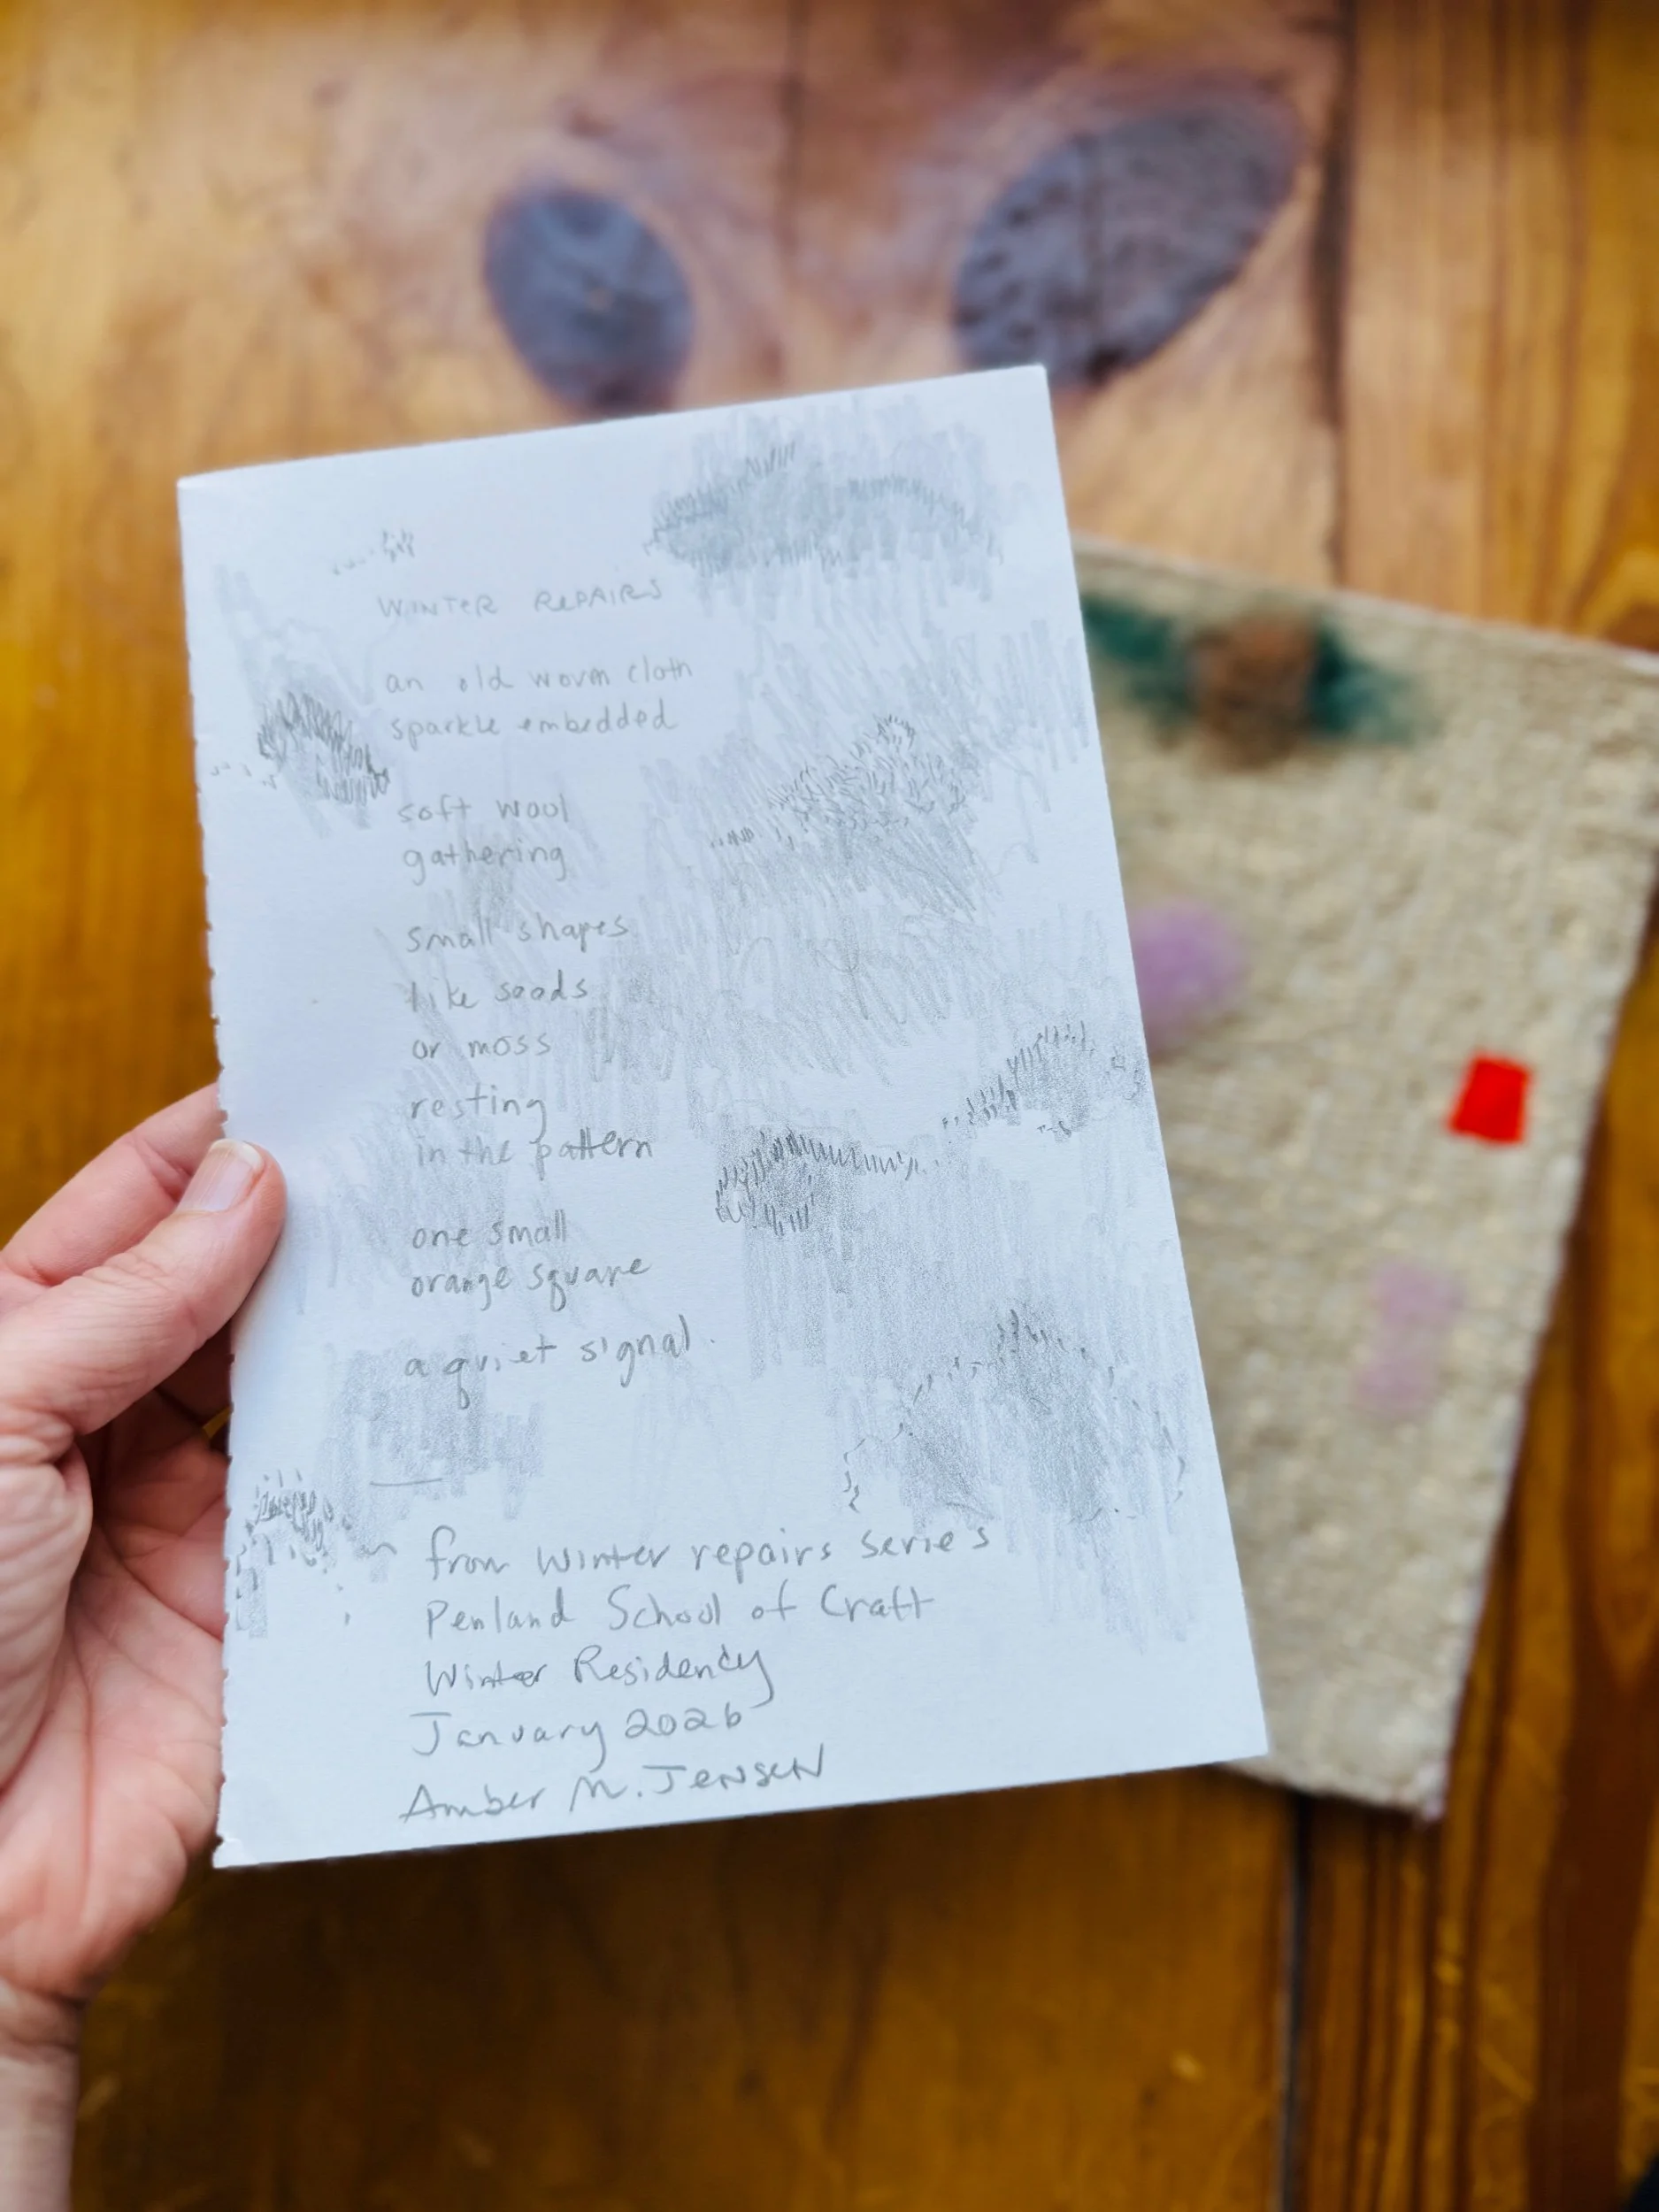 WINTER REPAIRS
an old worn cloth
sparkle embedded
soft wool
gathering
small shapes
like seeds
or moss
resting
in the pattern
one small
orange square
a quiet signal.
from winter repairs series
Penland School of Craft
Winter Residency
January 2026
Amber M. JENSEN